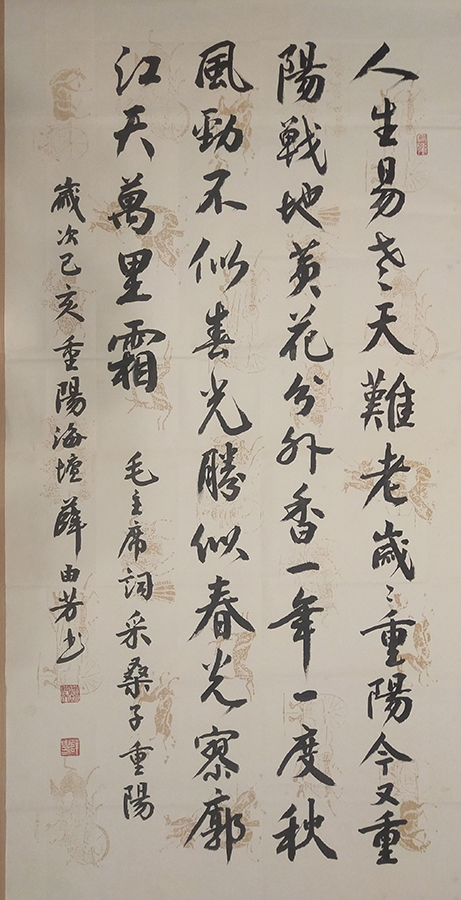 人生易老天難老歲〻重陽今又重
陽戰地黃花分外香一年一度秋
風勁不似春光勝似春光寥廓
江天萬里霜 毛主席詞采桑子重陽
歲次己亥重陽海壇薛由芳书